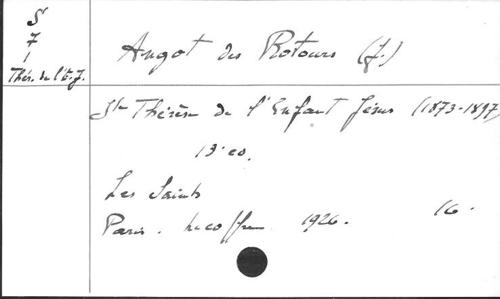 S
7
1
Thér. de l'E. J.
Angot des Rotours (J.)
Ste Thérèse de l'Enfant Jésus (1873-1897)
13e ed.
Les Saints
Paris. Lecoffre 1926. 16.